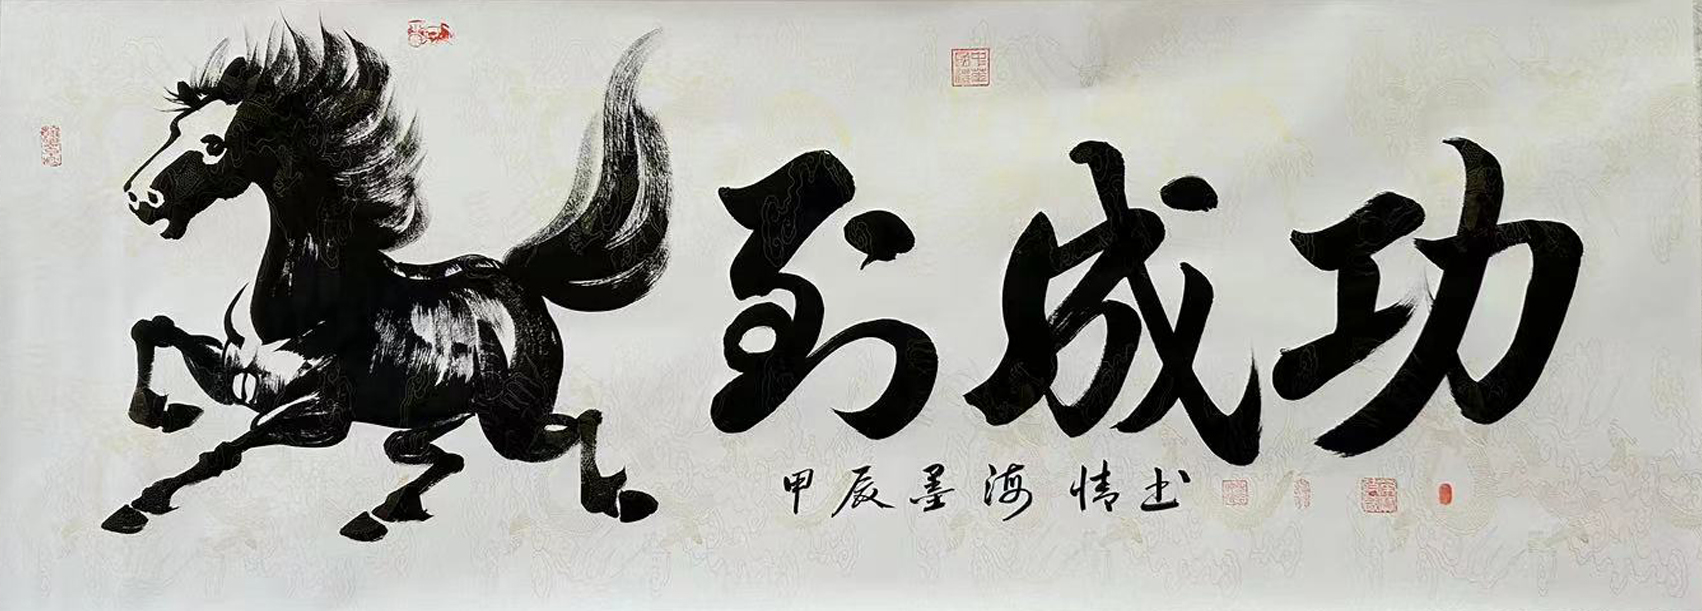 到成功
甲辰墨海情书